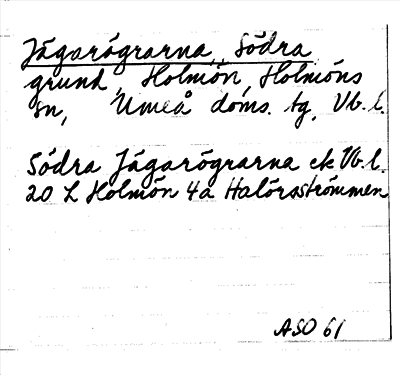 Jägarögrarna, Södra
grund, Holmön, Holmöns
sn, Umeå doms. tg, Vb. l.
Södra Jägarögrarna ek Vb. l.
20 L Holmön 4a Halörsströmmen
ASO 61